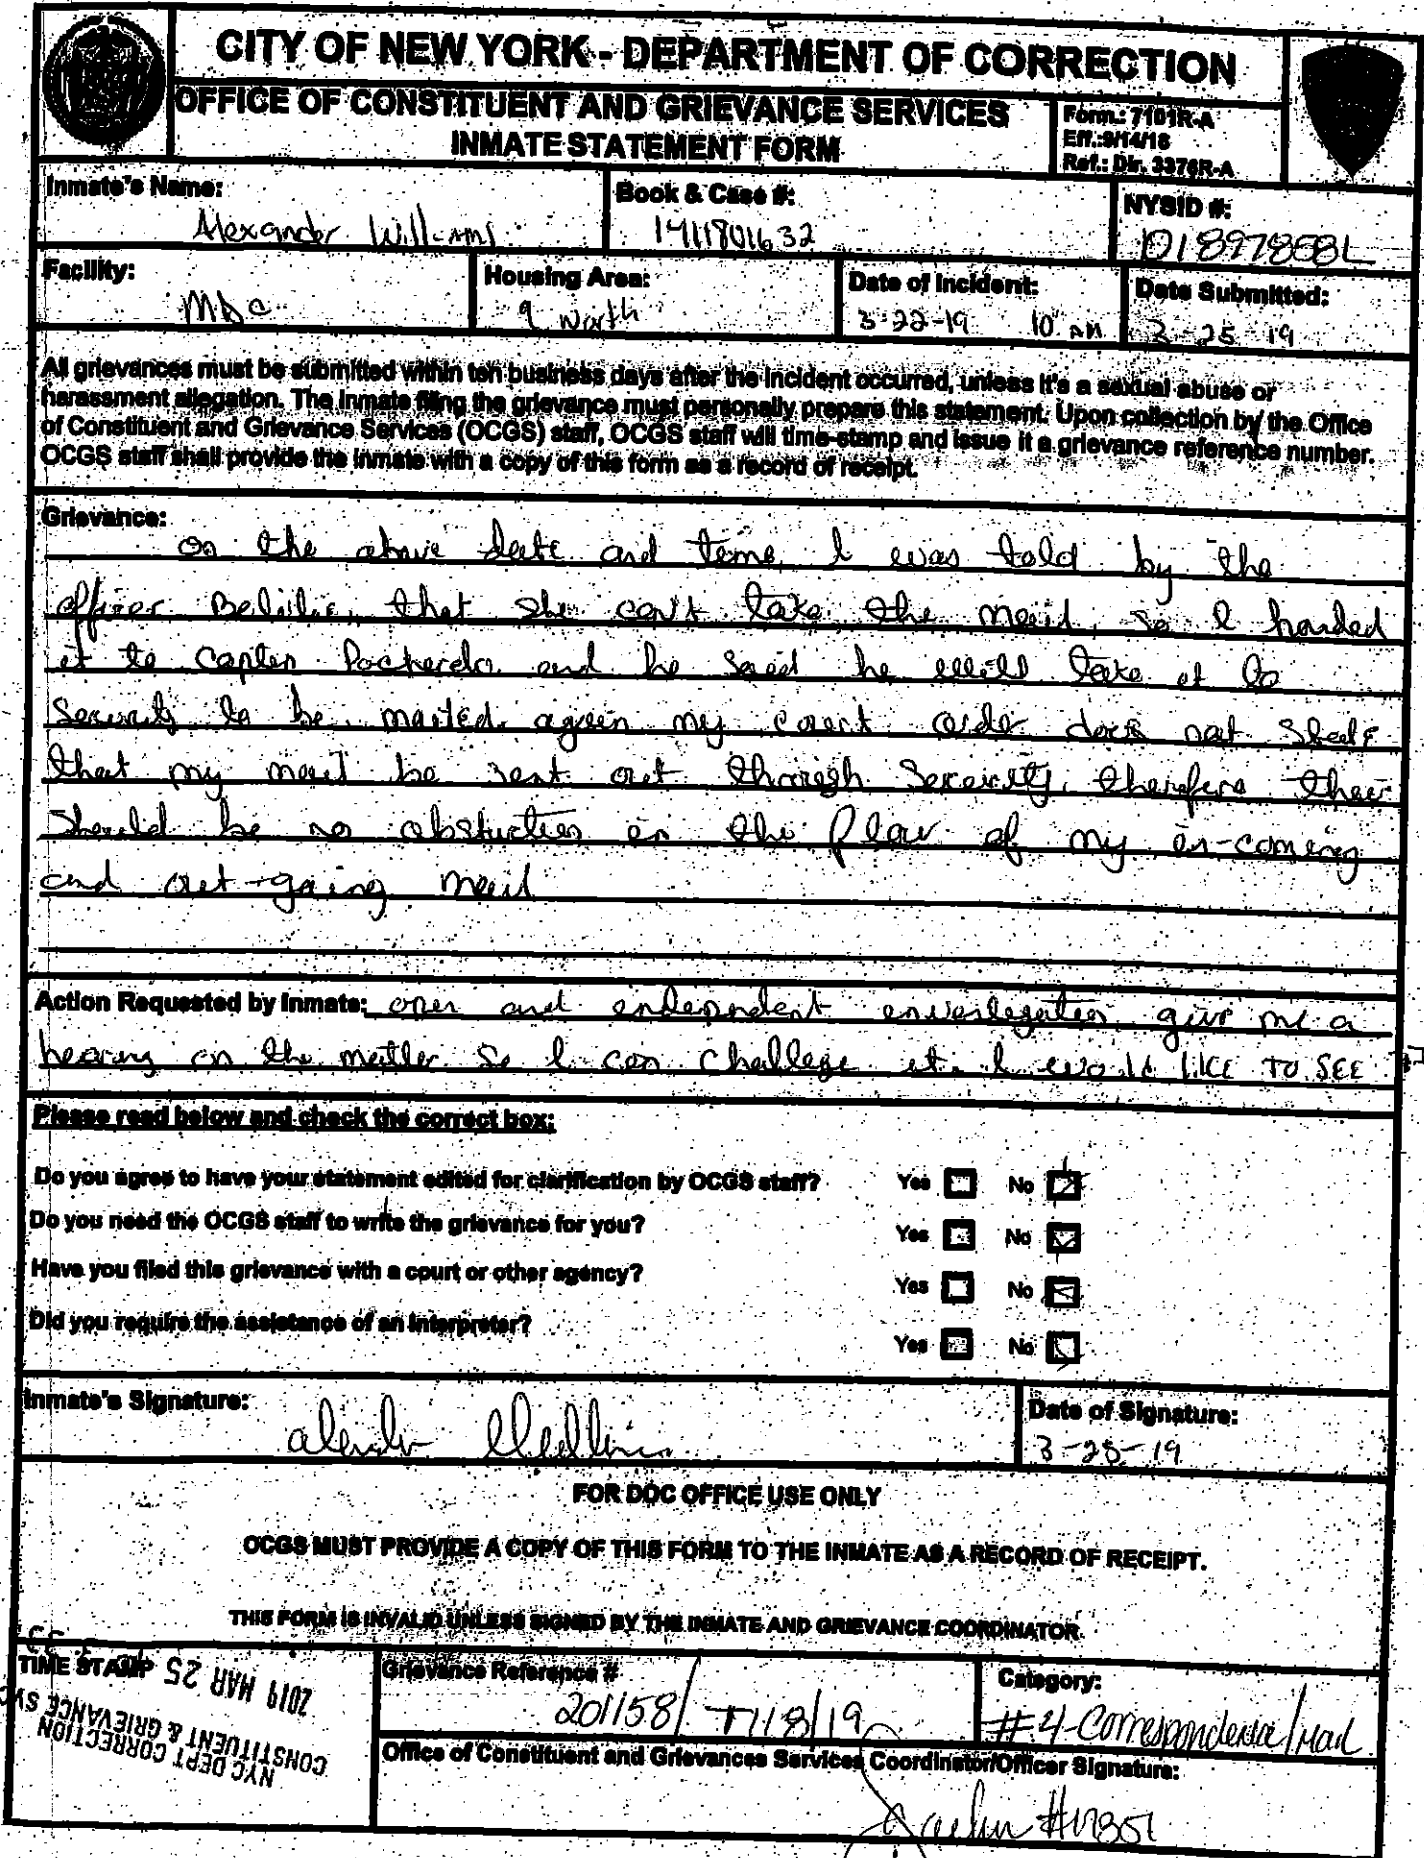 CITY OF NEW YORK - DEPARTMENT OF CORRECTION
OFFICE OF CONSTITUENT AND GRIEVANCE SERVICES
INMATE STATEMENT FORM
Form.: 7101R-A
Eff.:9/14/18
Ref.: Dir. 3376R-A
Inmate's Name:
Alexander Williams
Book & Case #:
1411801632
NYSID #:
01897858L
Facility:
MDC
Housing Area:
9 North
Date of Incident:
3-22-19 10 AM
Date Submitted:
3-25-19
All grievances must be submitted within ten business days after the incident occurred, unless it's a sexual abuse or
harassment allegation. The inmate filing the grievance must personally prepare this statement. Upon collection by the Office
of Constituent and Grievance Services (OCGS) staff, OCGS staff will time-stamp and issue it a grievance reference number.
OCGS staff shall provide the inmate with a copy of this form as a record of receipt.
Grievance:
on the above date and time, I was told by the
officer that she can't take the mail, so I handed
it to and he said he will take it to
Security to be mailed. again my court order does not state
that my mail be sent out through Security, therefore their
should be no in the flow of my in-coming
and out-going mail
Action Requested by Inmate: open and endependent give me a
hearing on the matter so I can challege it. I would LIKE TO SEE
Please read below and check the correct box:
Do you agree to have your statement edited for clarification by OCGS staff? Yes No
Do you need the OCGS staff to write the grievance for you? Yes No
Have you filed this grievance with a court or other agency? Yes No
Did you require the assistance of an interpreter? Yes No
Inmate's Signature:
Date of Signature:
3-25-19
FOR DOC OFFICE USE ONLY
OCGS MUST PROVIDE A COPY OF THIS FORM TO THE INMATE AS A RECORD OF RECEIPT.
THIS FORM IS INVALID UNLESS SIGNED BY THE INMATE AND GRIEVANCE COORDINATOR.
TIME STAMP
2019 MAR 25
CONSTITUENT & GRIEVANCE
NYC DEPT CORRECTION
Grievance Reference #
201158/
Category:
#4-Correspondence/Mail
Office of Constituent and Grievances Services Coordinator/Officer Signature: